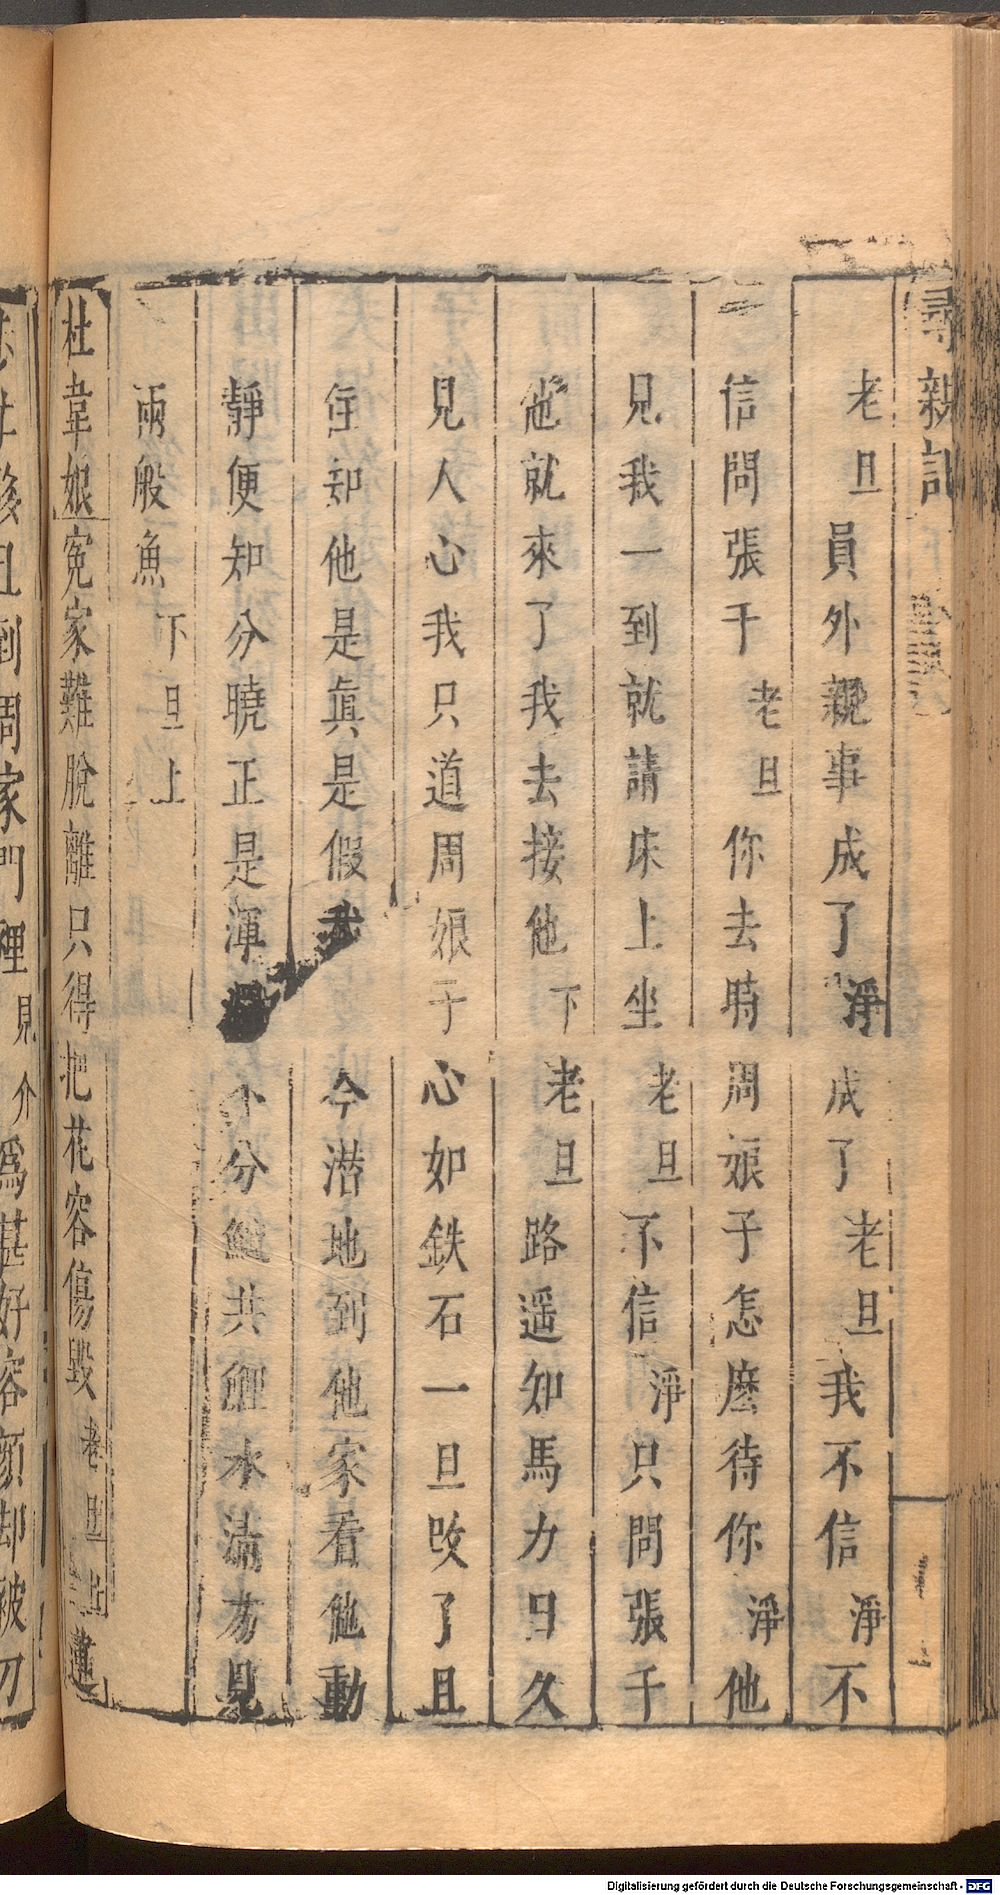 尋親記
老旦員外親事成了淨成了老旦我不信淨不
信問張千老旦你去時周娘子怎麽待你淨他
見我一到就請床上坐老旦不信淨只問張千
他就來了我去接他下老旦路遥知馬力日久
見人心我只道周娘子心如鉄石一旦改了且
住知他是真是假我今潜地到他家看他動
靜便知分曉正是渾濁不分鰱共鯉水清方見
兩般魚下旦上
杜韋娘寃家難脫離只得把花容傷毀老旦
到周家門裡見介爲甚好容顏却被刀
Digitalisierung gefördert durch die Deutsche Forschungsgemeinschaft - DFG